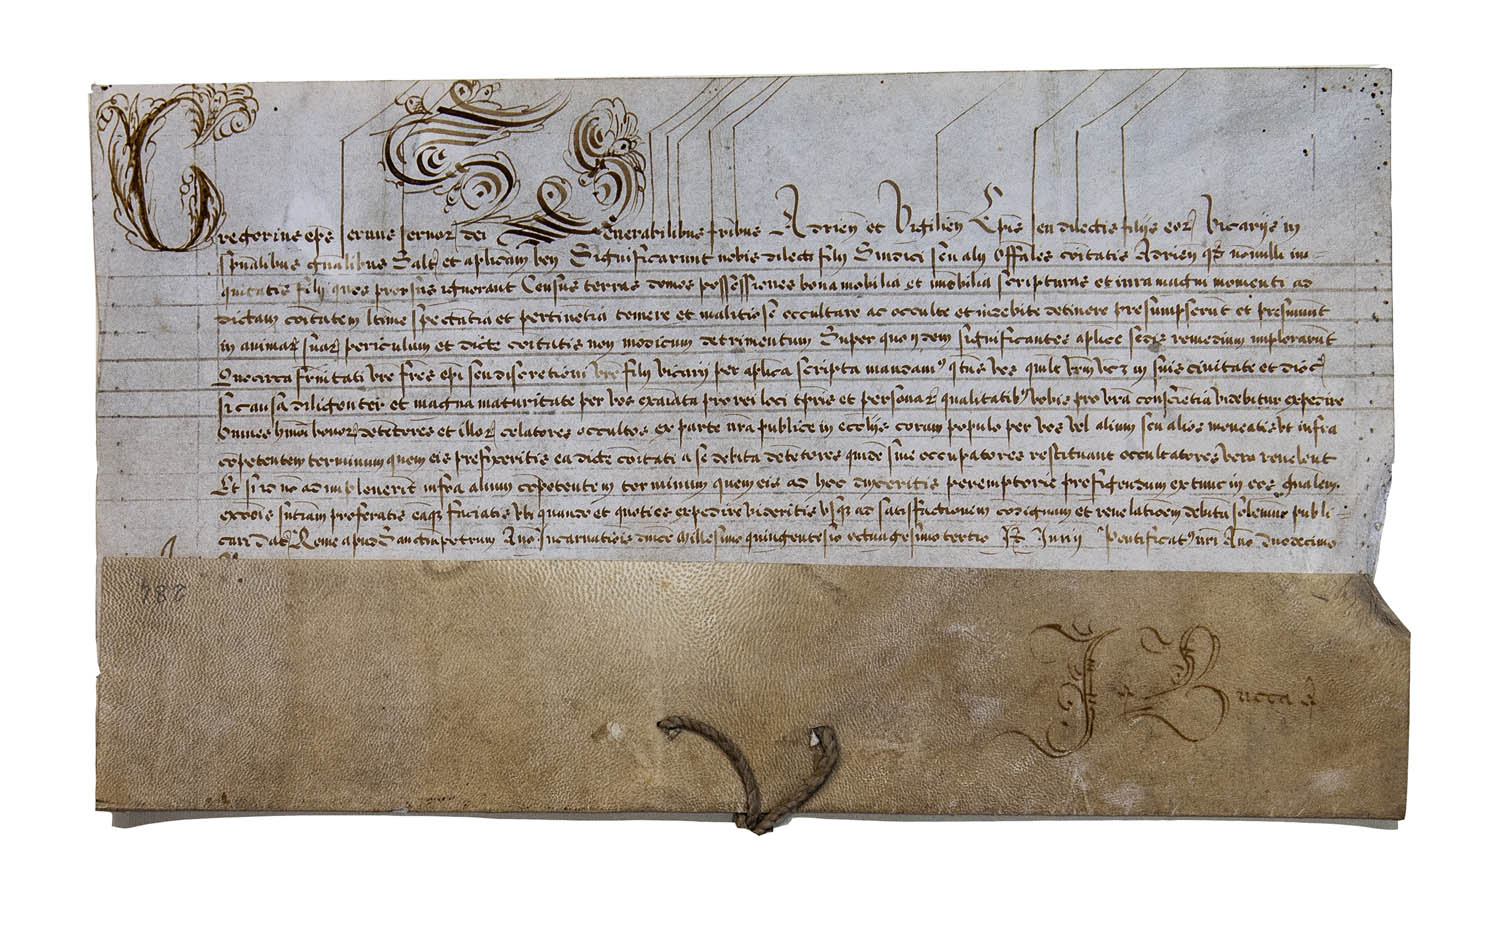 Gregorius eps servus servor dei Venerabilibus fribus Adrien et Vigilien Epis seu dilectis filijs eor Vicarijs in
spualibus gnalibus Salt et aplicam ben Significarunt nobis dilecti filij Sindici seu alij Offales coitatis Adrien qd nonnulli ini-
quitatis filij quos prorsus ignorant Census terras domos possessiones bona mobilia et imobilia scripturas et iura magni momenti ad
dictam coitatem ltime spectantia et pertinetia temere et malitiose occultare ac occulte et indebite detinere presumpserunt et presumunt
in animar suar periculum et dicte coitatis non modicum detrimentum Super quo ijdem significantes aplice sedis remedium implorarunt
Quocirca frnitati vre fres epi seu discretioni vre filij vicarij per aplica scripta mandam qtus vos quilt vrm in suis civitate et dioc
si causa diligenter et magna maturitate per vos exaiata pro rei loci tpris et personar qualitatib vobis pro vra conscietia videbitur expedire
Omnes hmoi bonor detetores et illor celatores occultos ex parte nra publice in ecclijs coram populo per vos vel alium seu alios moneatis ut infra
copetentem terminum quem eis prefixeritis ea dicte coitati a se debita detetores quide sive occupatores restituant occultatores vero revelent
Et si id no adimpleverit infra alium copetentem terminum quem eis ad hoc duxeritis peremptorie prefigendum extunc in eos gnalem
excois sntiam proferatis eaq faciatis ubi quando et quoties expedire videritis usq ad satisfactionem codignam et revelatioem debita solemnr publi-
cari Dat Rome apud Sanctupetrum Ano Incarnationis dnice Millesimo quingentesio octuagesimo tertio Kl Junij Pontificat nri Ano Duodecimo
282
Buccarñ